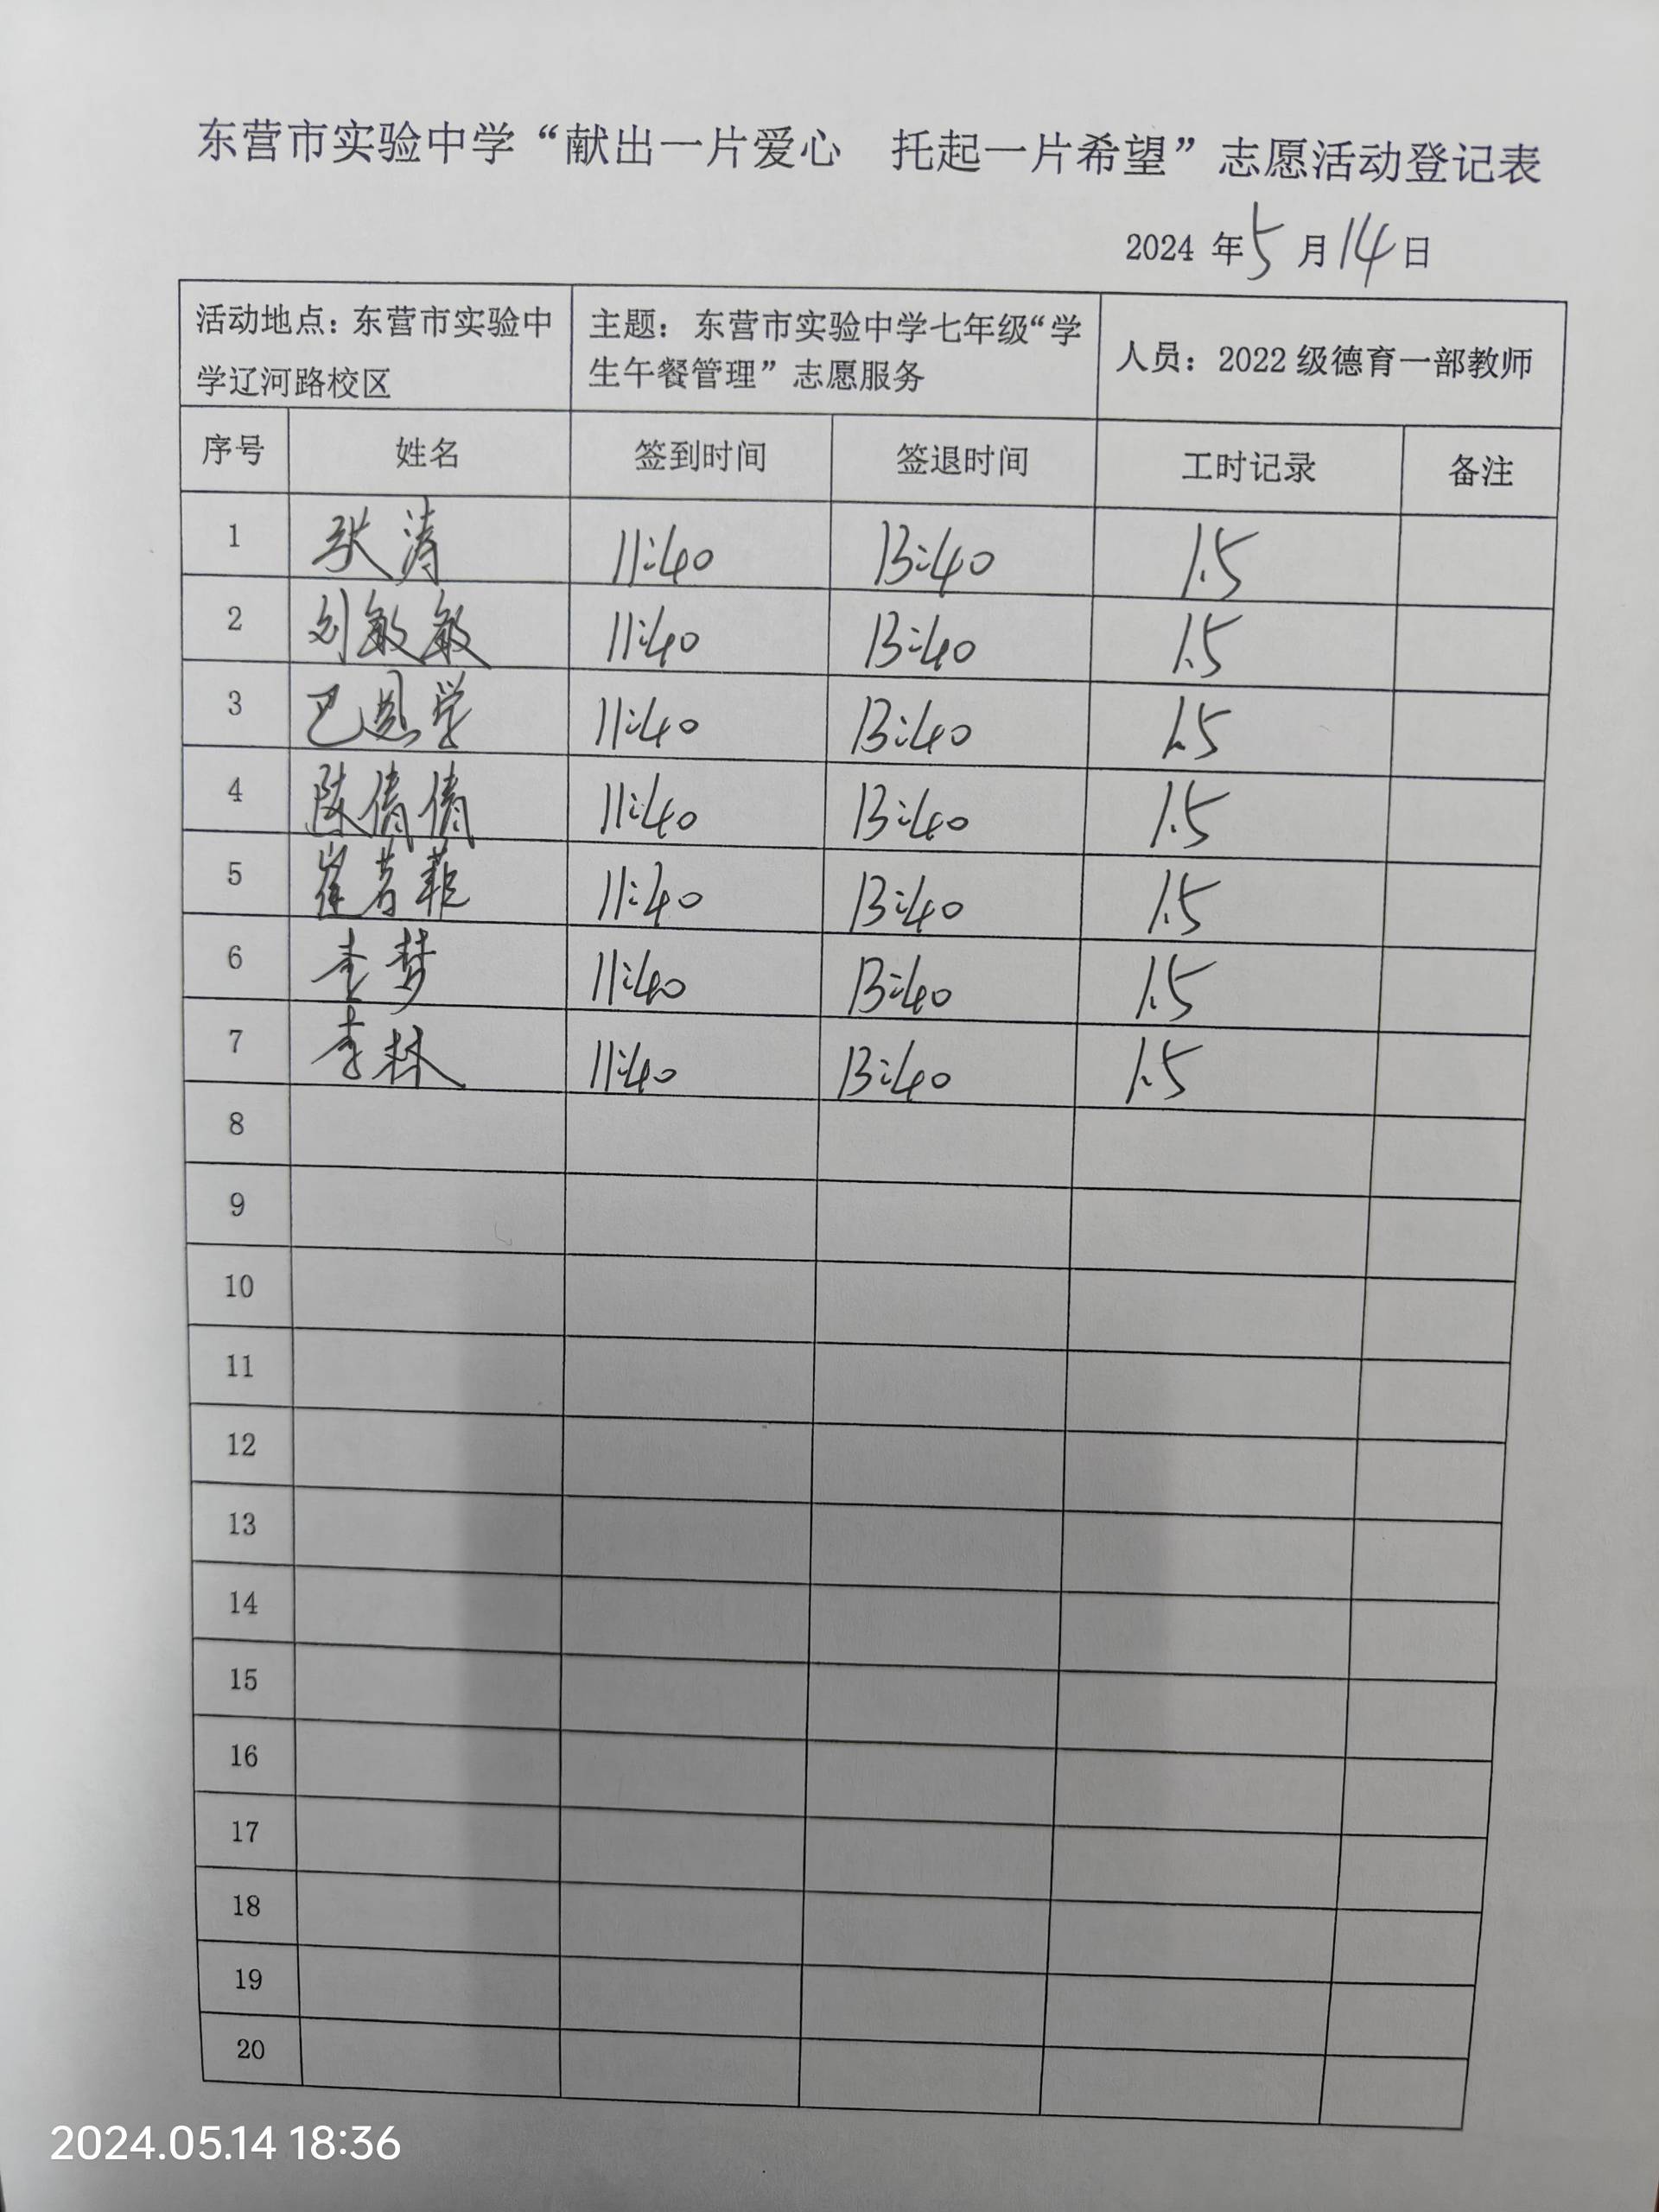 东营市实验中学“献出一片爱心　托起一片希望”志愿活动登记表
2024 年 5 月 14 日
活动地点：东营市实验中学辽河路校区 主题：东营市实验中学七年级“学生午餐管理”志愿服务 人员：2022 级德育一部教师
序号 姓名 签到时间 签退时间 工时记录 备注
1 张涛 11:40 13:40 1.5
2 刘敏敏 11:40 13:40 1.5
3 巴恩学 11:40 13:40 1.5
4 陈倩倩 11:40 13:40 1.5
5 崔若菲 11:40 13:40 1.5
6 李梦 11:40 13:40 1.5
7 李林 11:40 13:40 1.5
8
9
10
11
12
13
14
15
16
17
18
19
20
2024.05.14 18:36